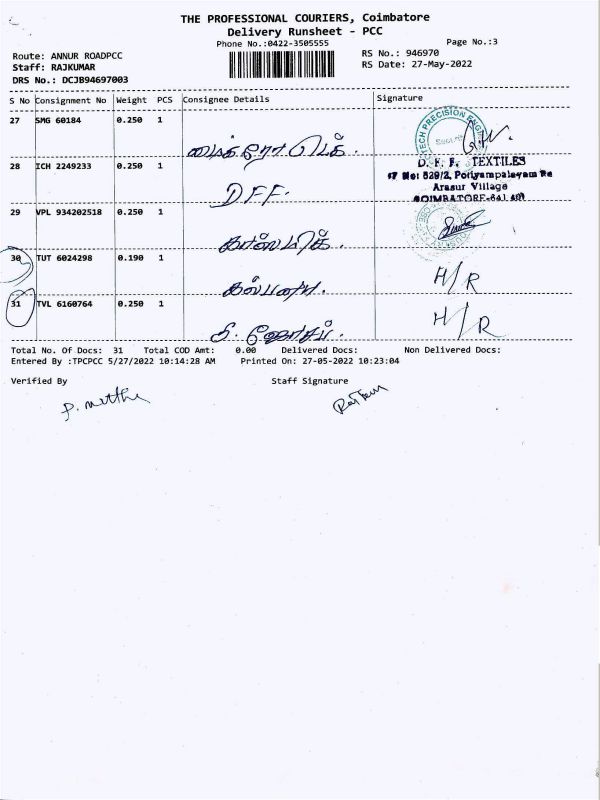 THE PROFESSIONAL COURIERS, Coimbatore
Delivery Runsheet - PCC
Phone No.:0422-3505555
Page No.:3
Route: ANNUR ROADPCC
RS No.: 946970
Staff: RAJKUMAR
RS Date: 27-May-2022
DRS No.: DCJB94697003
S No Consignment No Weight PCS Consignee Details Signature
27 SMG 60184 0.250 1
TECH PRECISION
மைக்ரோ டெக்.
28 ICH 2249233 0.250 1
D. F. F. TEXTILES
Arasur Village
DFF.
29 VPL 934202518 0.250 1
30 TUT 6024298 0.190 1
H/R
கல்பனா.
31 TVL 6160764 0.250 1
H/R
Total No. Of Docs: 31 Total COD Amt: 0.00 Delivered Docs: Non Delivered Docs:
Entered By :TPCPCC 5/27/2022 10:14:28 AM Printed On: 27-05-2022 10:23:04
Verified By Staff Signature